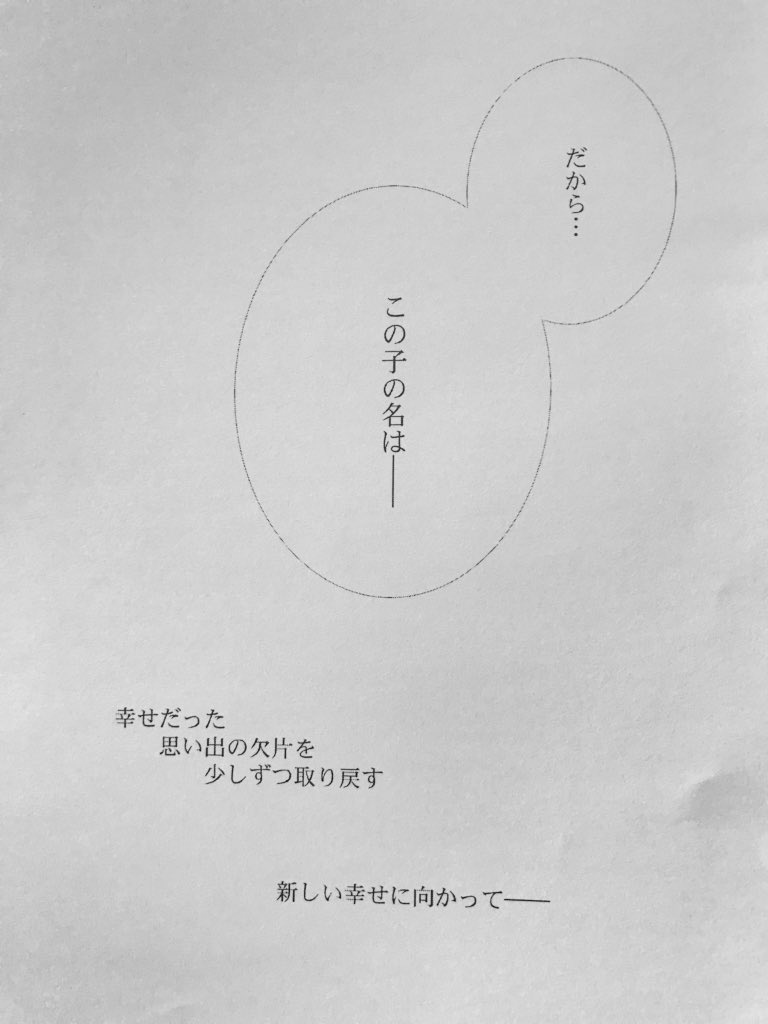 だから…
この子の名は──
幸せだった
思い出の欠片を
少しずつ取り戻す
新しい幸せに向かって──